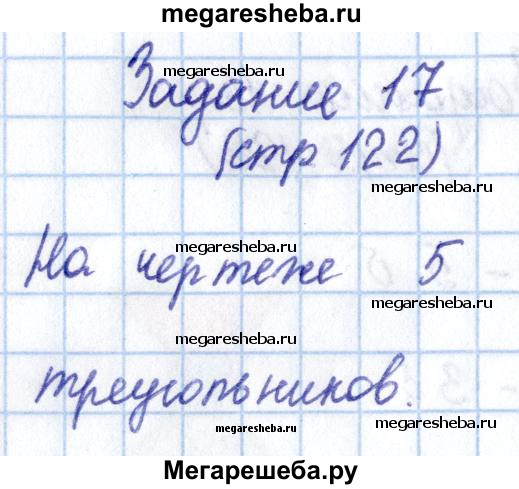 megaresheba.ru
Задание 17
megaresheba.ru
(стр 122)
megaresheba.ru
megaresheba.ru
На чертеже 5
megaresheba.ru
megaresheba.ru
треугольников.
megaresheba.ru
megaresheba.ru
Мегарешеба.ру